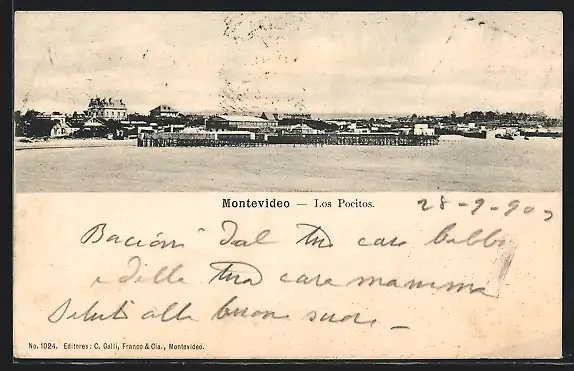 Montevideo — Los Pocitos.
28-9-903
Bacioni dal tuo caro babbo
e dalla tua cara mamma
Saluti alle buone suore —
No. 1024. Editores: C. Galli, Franco & Cia., Montevideo.